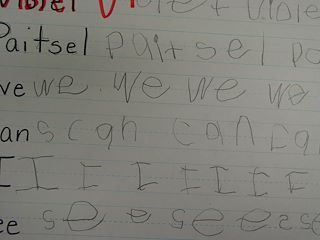 Violet Violet Viole
Paitsel paitsel pa
we we we we we
can scan can can
I I I I I I I I
see se e see ese